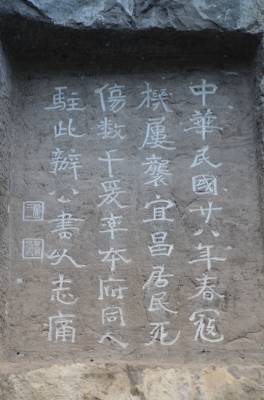 中華民國廿八年春寇
機屢襲宜昌居民死
傷数千爰率本府同人
駐此辦公書以志痛